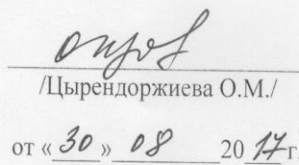 /Цырендоржиева О.М./
от « 30 » 08 20 17 г